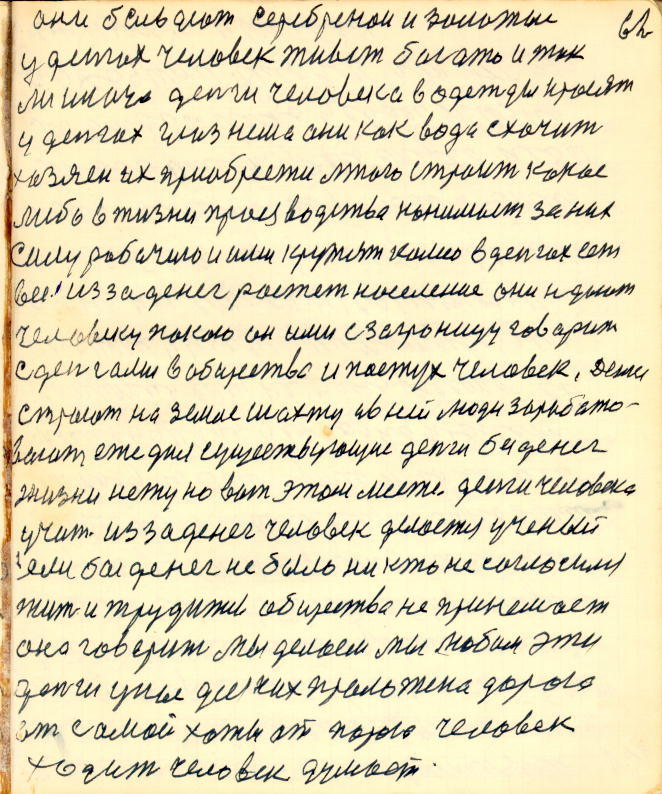 они бельдют серебреной и золотые 62
у деньгах человек живет богато и так
ли иначе деньги человека в одежды кросят
у деньгах глаз нема они как вода схочит
хозяен их приобрести много строит какое
либо в жизни производства нанимает за них
силу рабочию и ими крутят колео в деньгах сет
все! из за денег ростет население они н дают
человеку покою он ими с заграницу говорит
с деньгами в обществе и пастух человек. Деньги
строют на земле шахту в ней люди заработо-
вают еже дня существующие деньги без денег
жизни нету но вот этом месте. деньги человека
учат. из за денег человек делается ученый
если бы денег не было ни кто не согласился
жит и трудится общества не принемает
оно говорит мы делаем мы любим эти
деньги у них для них проложена дорога
от самой хаты от порога человек
ходит человек думает.